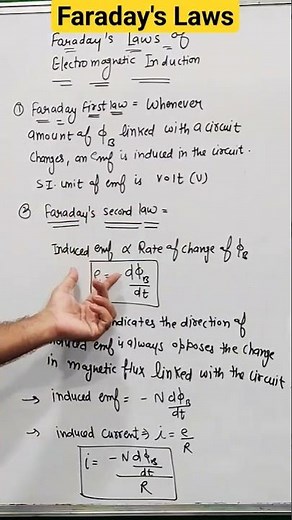 Faraday's Laws
Faraday's Laws of
Electromagnetic Induction
① Faraday First law = Whenever
amount of ϕ_B linked with a circuit
Changes, an emf is induced in the circuit.
S.I. unit of emf is volt (V)
② Faraday's second law =
Induced emf ∝ Rate of change of ϕ_B
e = dϕ_B/dt
indicates the direction of
induced emf is always opposes the change
in magnetic flux linked with the circuit
→ induced emf = -N dϕ_B/dt
→ induced Current ⇒ i = e/R
i = -N dϕ_B/dt / R